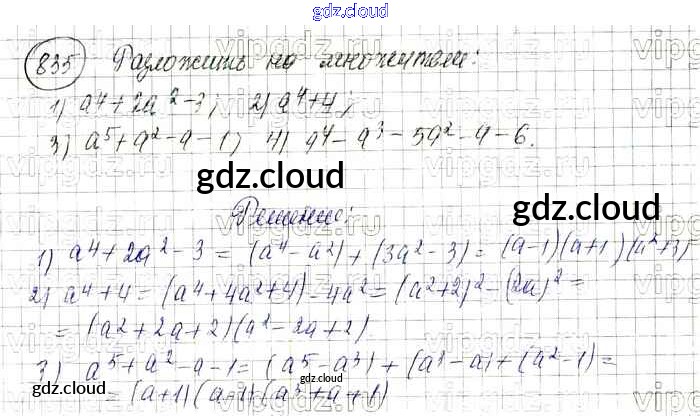 gdz.cloud
835 Разложить на множители:
1) a⁴+2a²-3; 2) a⁴+4;
3) a⁵+a²-a-1; 4) a⁴-a³-5a²-a-6.
gdz.cloud
gdz.cloud
Решение:
1) a⁴+2a²-3 = (a⁴-a²)+(3a²-3) = (a-1)(a+1)(a²+3)
2) a⁴+4 = (a⁴+4a²+4)-4a² = (a²+2)²-(2a)² =
= (a²+2a+2)(a²-2a+2)
3) a⁵+a²-a-1 = (a⁵-a³)+(a³-a)+(a²-1) =
= (a+1)(a-1)(a³+a+1)
gdz.cloud
gdz.cloud
gdz.cloud